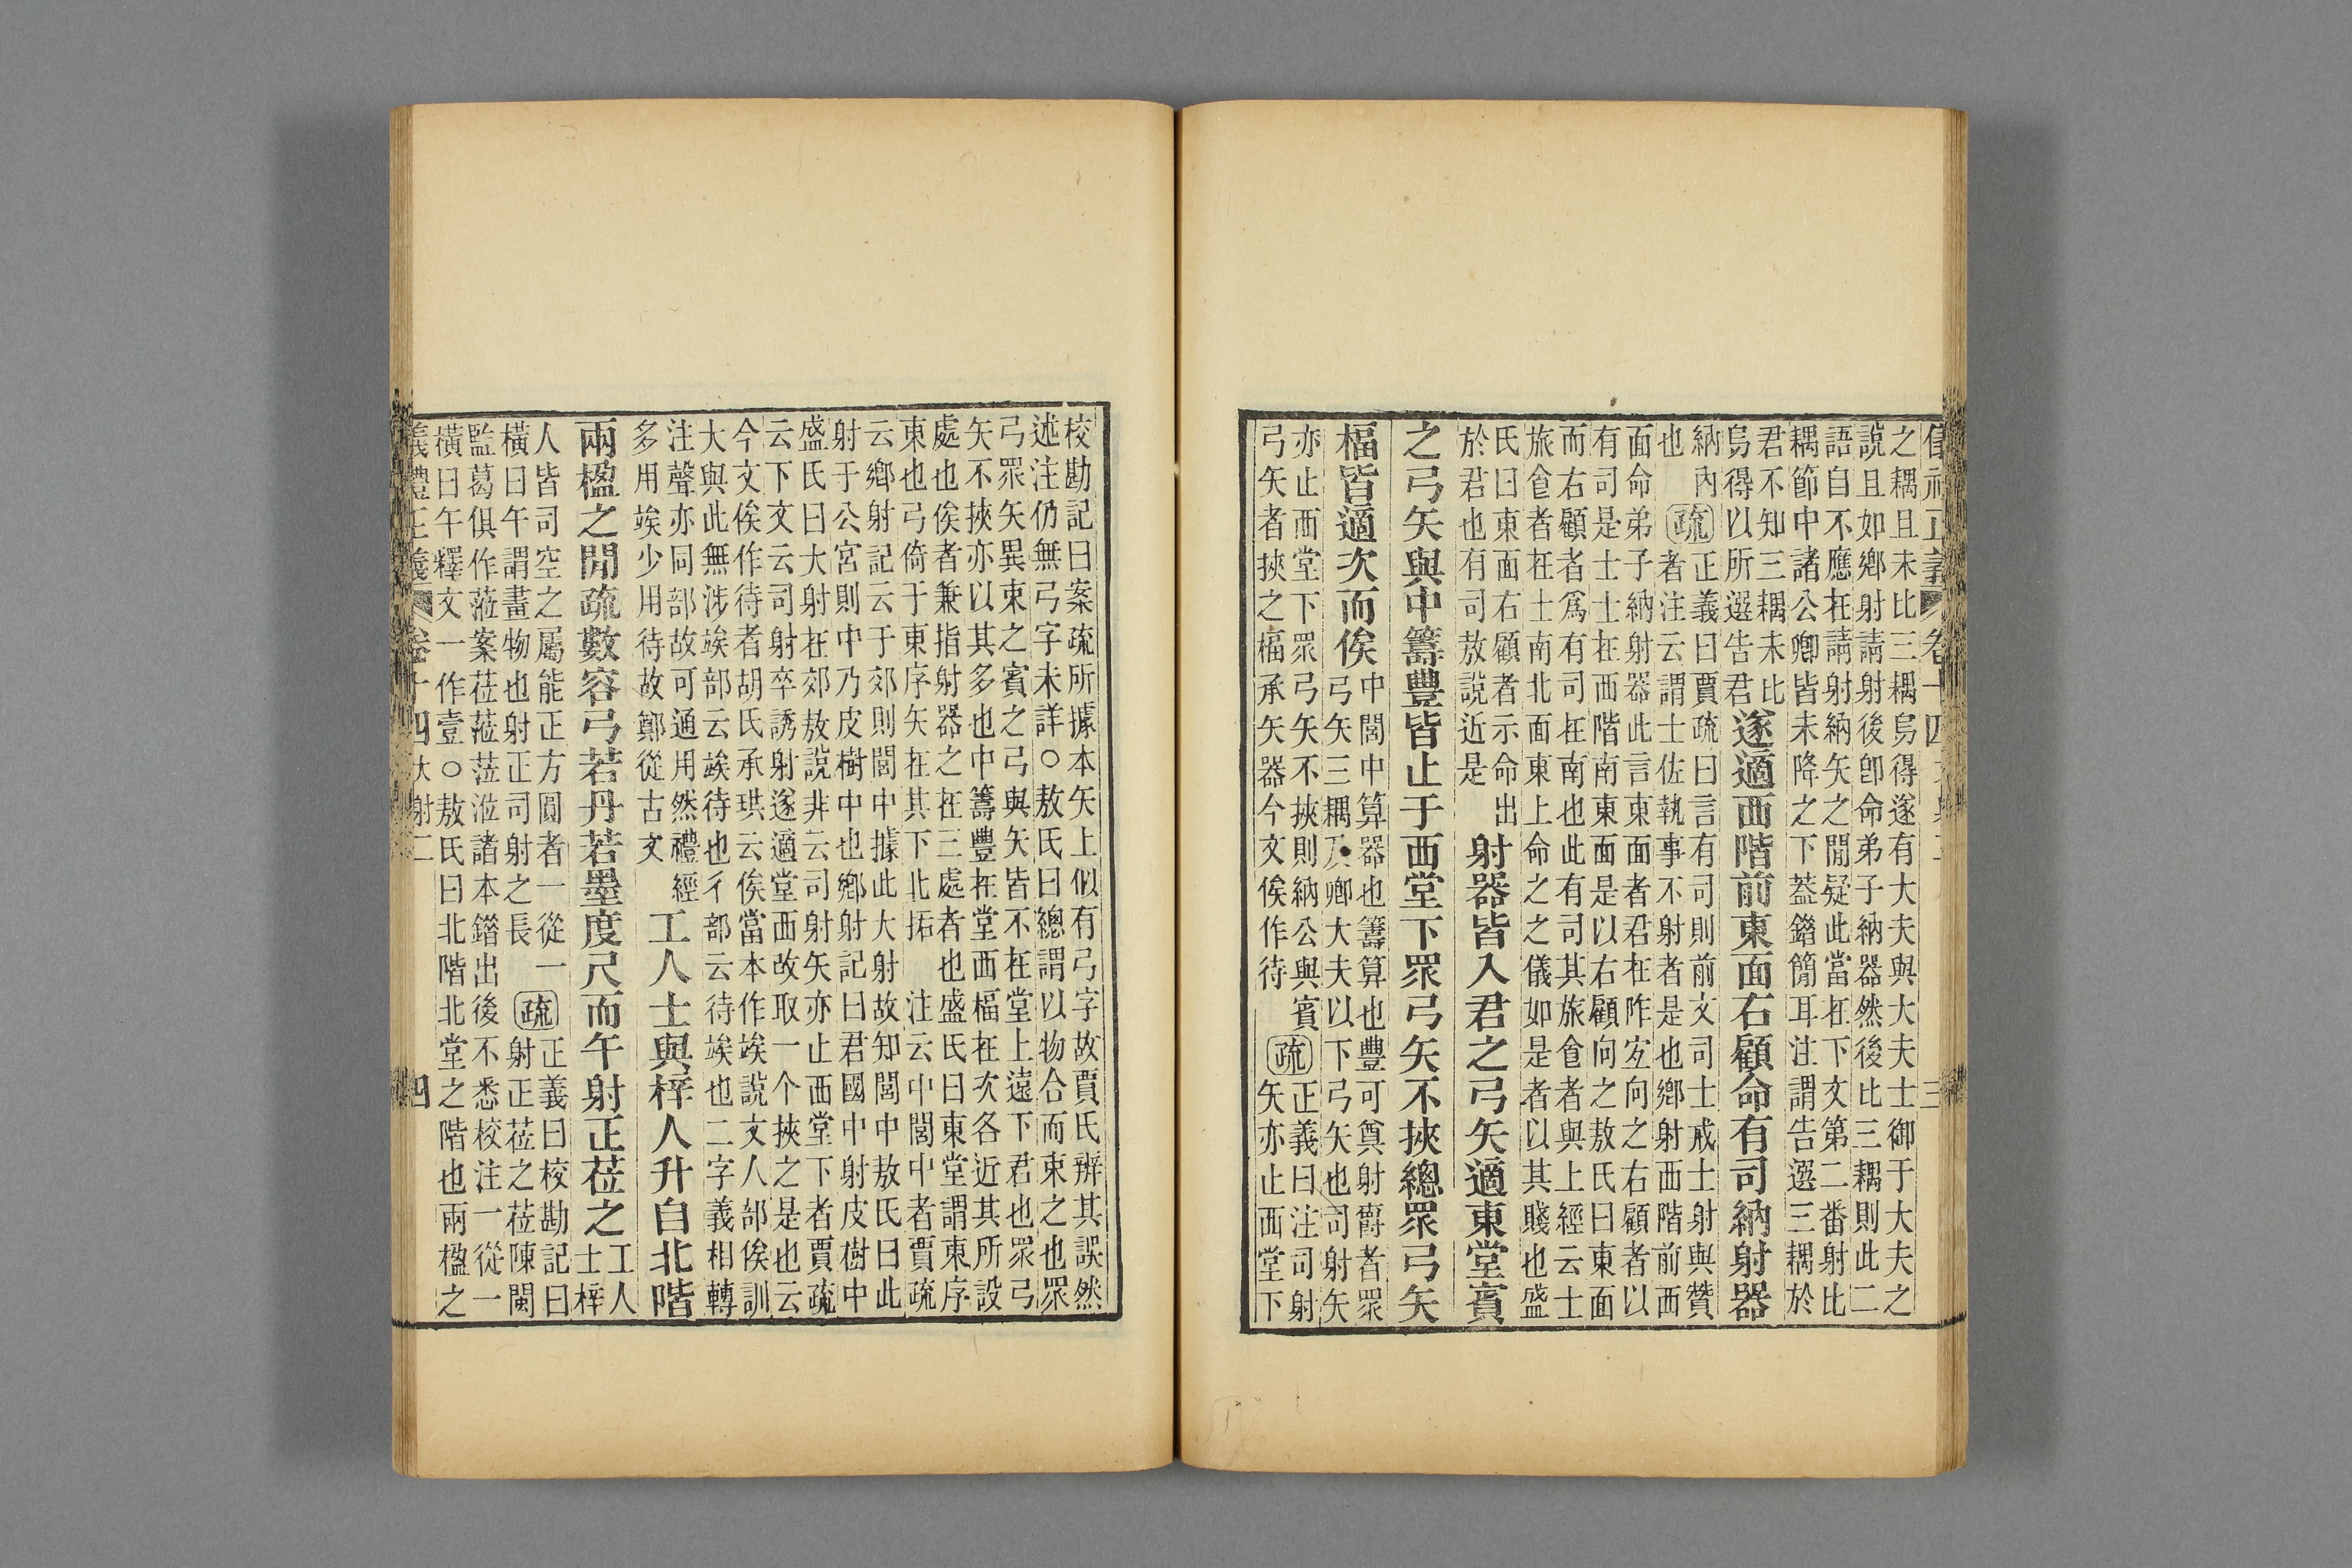 之耦且未比三耦烏得遂有大夫與大夫士御于大夫之
說且如鄉射請射後卽命弟子納器然後比三耦則此二
語自不應在請射納矢之閒疑此當在下文第二番射比
耦節中諸公卿皆未降之下蓋錯簡耳注謂告選三耦於
君不知三耦未比
烏得以所選告君
遂適西階前東面右顧命有司納射器
納內
也
疏
正義曰賈疏曰言有司則前文司士戒士射與贊
者注云謂士佐執事不射者是也鄉射西階前西
面命弟子納射器此言東面者君在阼宐向之右顧者以
有司是士士在西階南東面是以右顧向之敖氏曰東面
而右顧者爲有司在南也此有司其旅食者與上經云士
旅食者在士南北面東上命之之儀如是者以其賤也盛
氏曰東面右顧者示命出
於君也有司敖說近是
射器皆入君之弓矢適東堂賓
之弓矢與中籌豐皆止于西堂下眾弓矢不挾總眾弓矢
楅皆適次而俟
中閭中算器也籌算也豐可奠射爵者眾
弓矢三耦及卿大夫以下弓矢也司射矢
亦止西堂下眾弓矢不挾則納公與賓
弓矢者挾之楅承矢器今文俟作待
疏
正義曰注司射
矢亦止西堂下
校勘記曰案疏所據本矢上似有弓字故賈氏辨其誤然
述注仍無弓字未詳○敖氏曰總謂以物合而束之也眾
弓眾矢異束之賓之弓與矢皆不在堂上遠下君也眾弓
矢不挾亦以其多也中籌豐在堂西楅在次各近其所設
處也俟者兼指射器之在三處者也盛氏曰東堂謂東序
東也弓倚于東序矢在其下北括 注云中閭中者賈疏
云鄉射記云于郊則閭中據此大射故知閭中敖氏曰此
射于公宮則中乃皮樹中也鄉射記曰君國中射皮樹中
盛氏曰大射在郊敖說非云司射矢亦止西堂下者賈疏
云下文云司射卒誘射遂適堂西改取一个挾之是也云
今文俟作待者胡氏承珙云俟當本作竢說文人部俟訓
大與此無涉竢部云竢待也彳部云待竢也二字義相轉
注聲亦同部故可通用然禮經
多用竢少用待故鄭從古文
工人士與梓人升自北階
兩楹之閒疏數容弓若丹若墨度尺而午射正莅之
工人
士梓
人皆司空之屬能正方圓者一從一
橫曰午謂畫物也射正司射之長
疏
正義曰校勘記曰
射正莅之莅陳閩
監葛俱作蒞案莅蒞涖諸本錯出後不悉校注一從一
橫曰午釋文一作壹○敖氏曰北階北堂之階也兩楹之